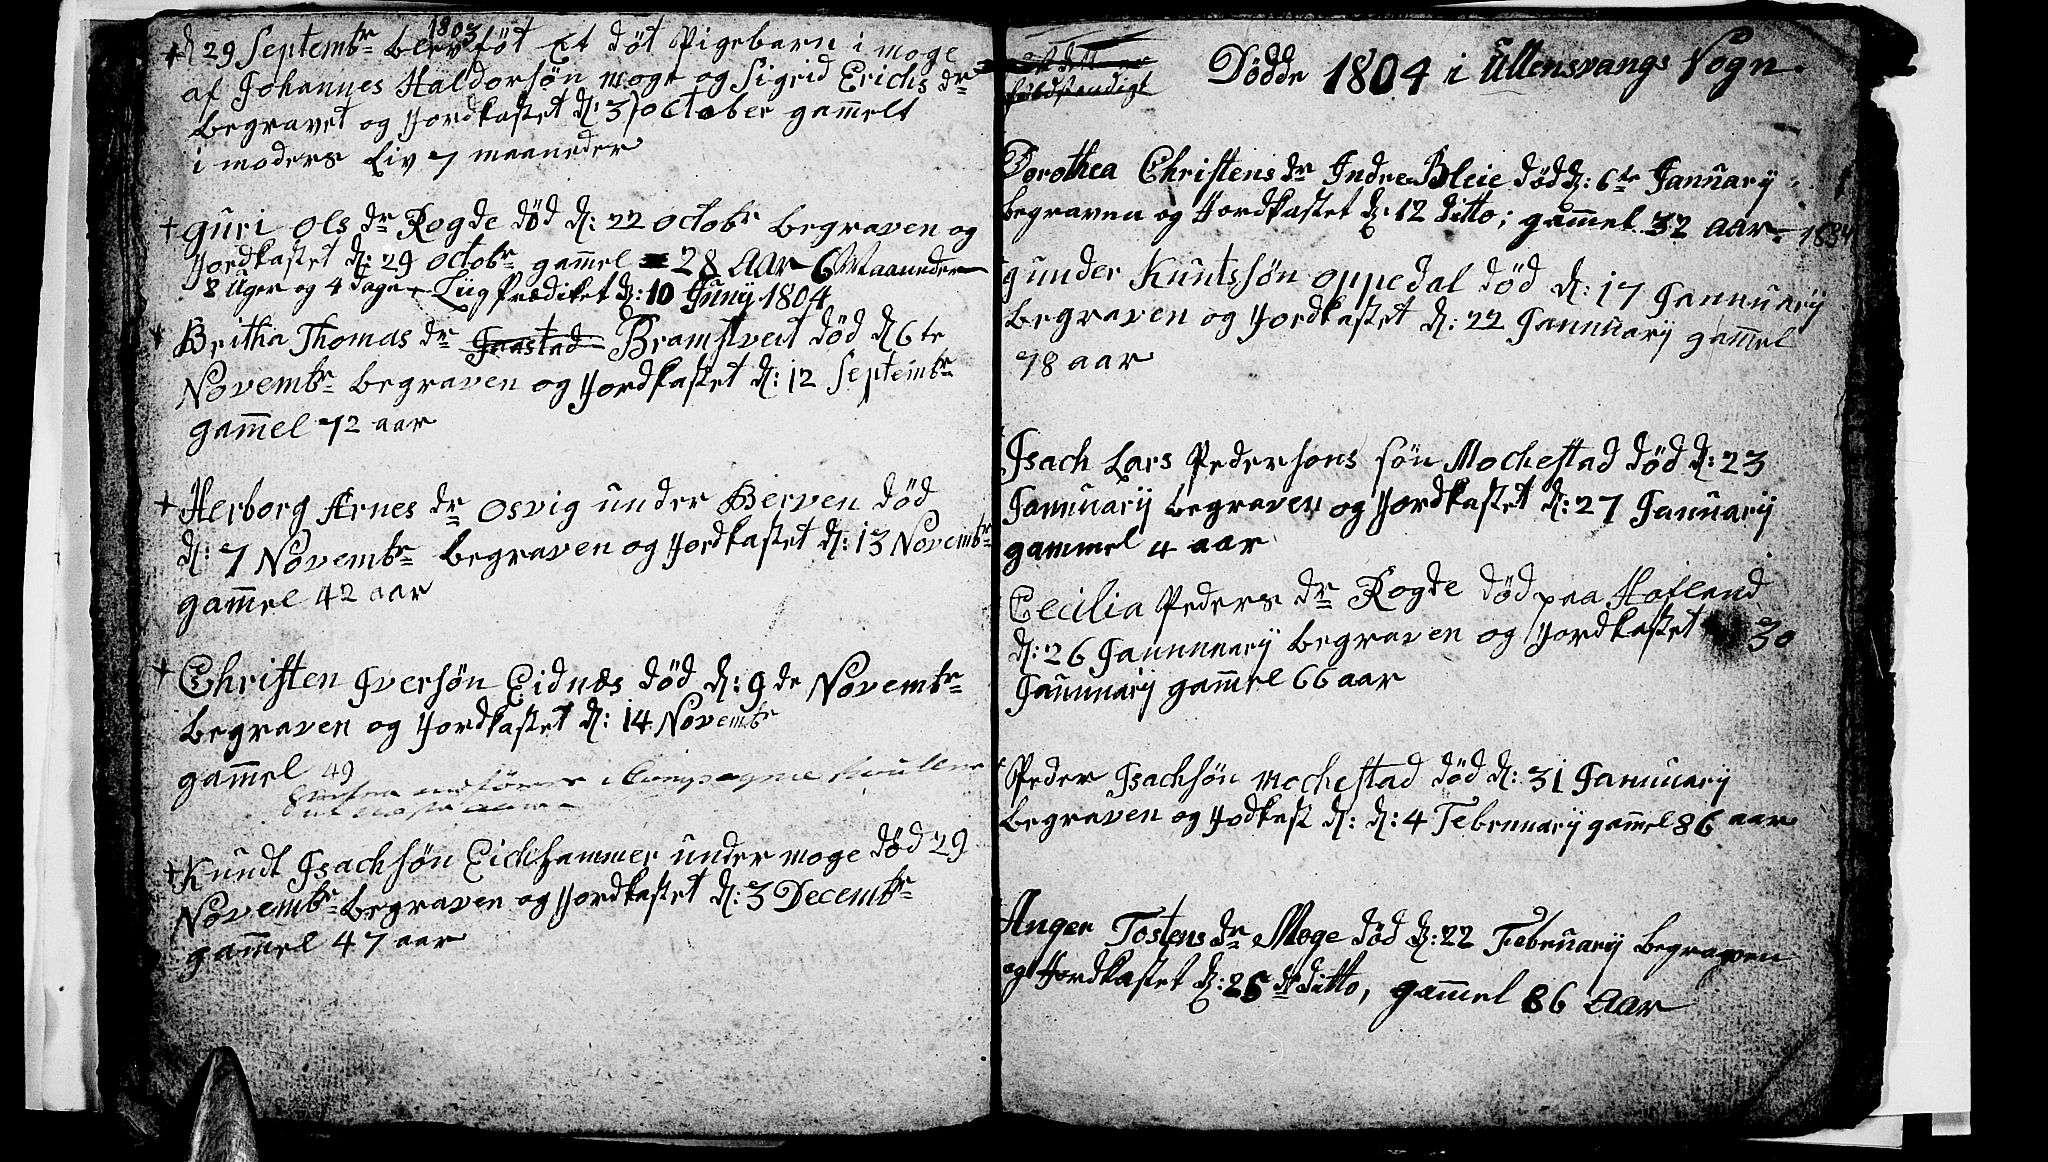 1803
d 29 Septembr blev føt Et døt Pigebarn i moge
af Johannes Haldorsøn moge og Sigrid Erichs dr
begravet og Jordkastet d: 3 october gam̄elt
i moders Liv 7 maaneder
+ guri Ols dr Rogde død d: 22 octobr begraven og
Jordkastet d: 29 octobr gam̄el 28 AAr 6 Maaneder
8 Uger og 4 dage Ligprædiket d: 10 Junij 1804
+ Britha Thomas dr Jaastad Bramstveit død d 6te
Novembr begraven og Jordkastet d: 12 Septembr
gam̄el 72 aar
+ Herborg Arnes dr Osvig under Berven død
d: 7 Novembr begraven og Jordkastet d: 13 Novembr
gam̄el 42 aar
+ Christen Iversøn Eidnæs død d: 9de Novembr
begraven og Jordkastet d: 14 Novembr
gam̄el 49
+ Kundt Isachsøn Eickhammer under moge død 29
Novembr begraven og Jordkastet d: 3 Decembr
gam̄el 47 aar
Dødde 1804 i Ullensvangs Sogn.
Dorothea Christens dr Indre Bleie død d: 6te Januarij
begraven og Jordkastet d: 12 ditto; gam̄el 32 AAr.
gunder Kuntssøn oppedal død d: 17 Jannuarij
begraven og Jordkastet d: 22 Jannuarij gam̄el
78 aar
Isach Lars Pedersøns søn Mochestad død d: 23
Jannuarij begraven og Jordkastet d: 27 Januarij
gammel 4 aar
Cecilia Peders dr Rogde død paa Hofland
d: 26 Jannuarij begraven og Jordkastet 30
Januarij gam̄el 66 aar
Peder Isachsøn Mochestad død d: 31 Januarij
begraven og Jodkast d: d: 4 Februuarij gam̄el 86 aar
Anger Tostens dr Moge død d: 22 Februarij begraven
og Jordkastet d: 26 ditto, gam̄el 86 AAr